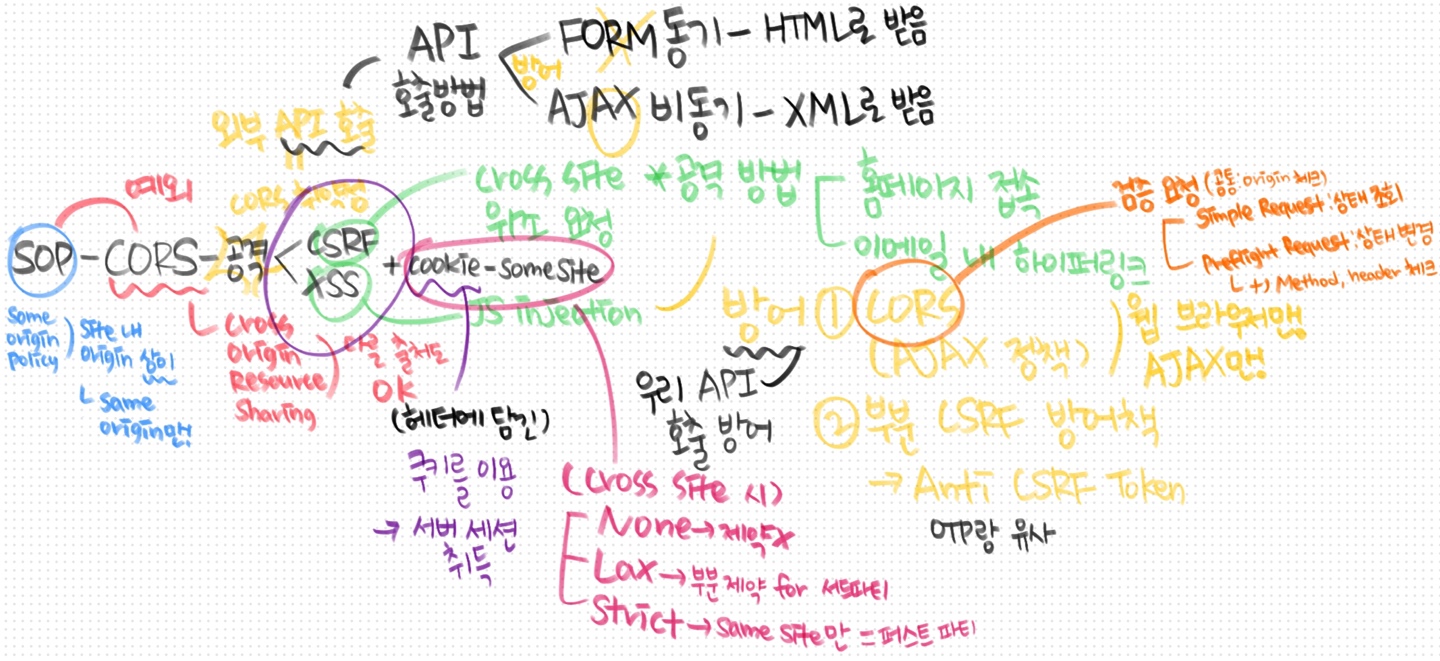 API
호출방법
FORM 동기 - HTML로 받음
방어
AJAX 비동기 - XML로 받음
외부 API 호출
예외
CORS
SOP - CORS - 공격
CSRF
XSS
+ cookie - some site
cross site
위조 요청
JS injection
* 공격 방법
홈페이지 접속
이메일 내 하이퍼링크
검증 요청 (공통: origin 체크)
Simple Request: 상태 조회
Preflight Request: 상태 변경
+) Method, header 체크
some
origin
policy
site 내
origin 상이
same
origin만
Cross
Origin
Resource
Sharing
다른 출처도
OK
(헤더에 담긴)
쿠키를 이용
→ 서버 세션
취득
방어 ① CORS
(AJAX 정책)
웹 브라우저만!
AJAX만!
우리 API
호출 방어
② 부분 CSRF 방어책
→ Anti CSRF Token
OTP랑 유사
(cross site 시)
None → 제약X
Lax → 부분제약 for 서드파티
Strict → same site만 = 퍼스트 파티